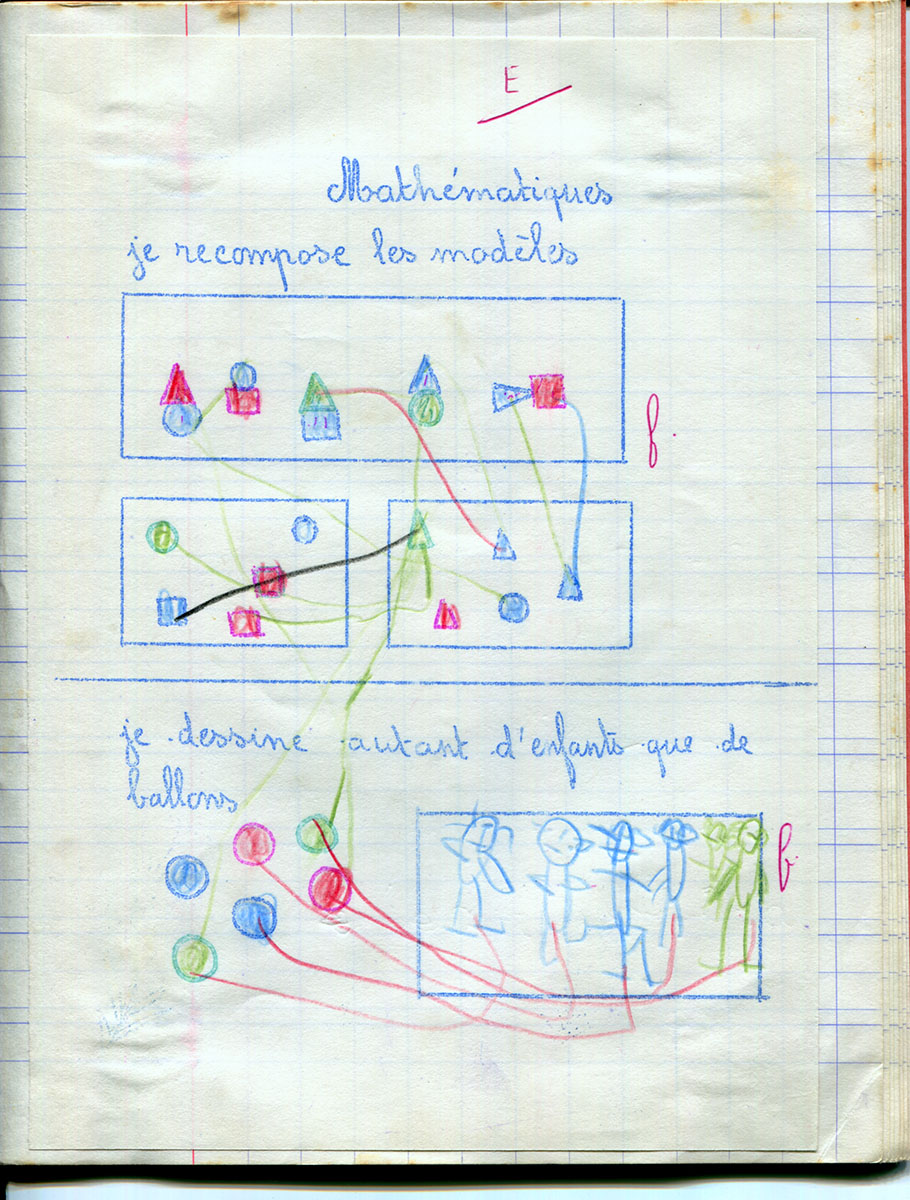 E
Mathématiques
je recompose les modèles
f.
je dessine autant d'enfants que de
ballons